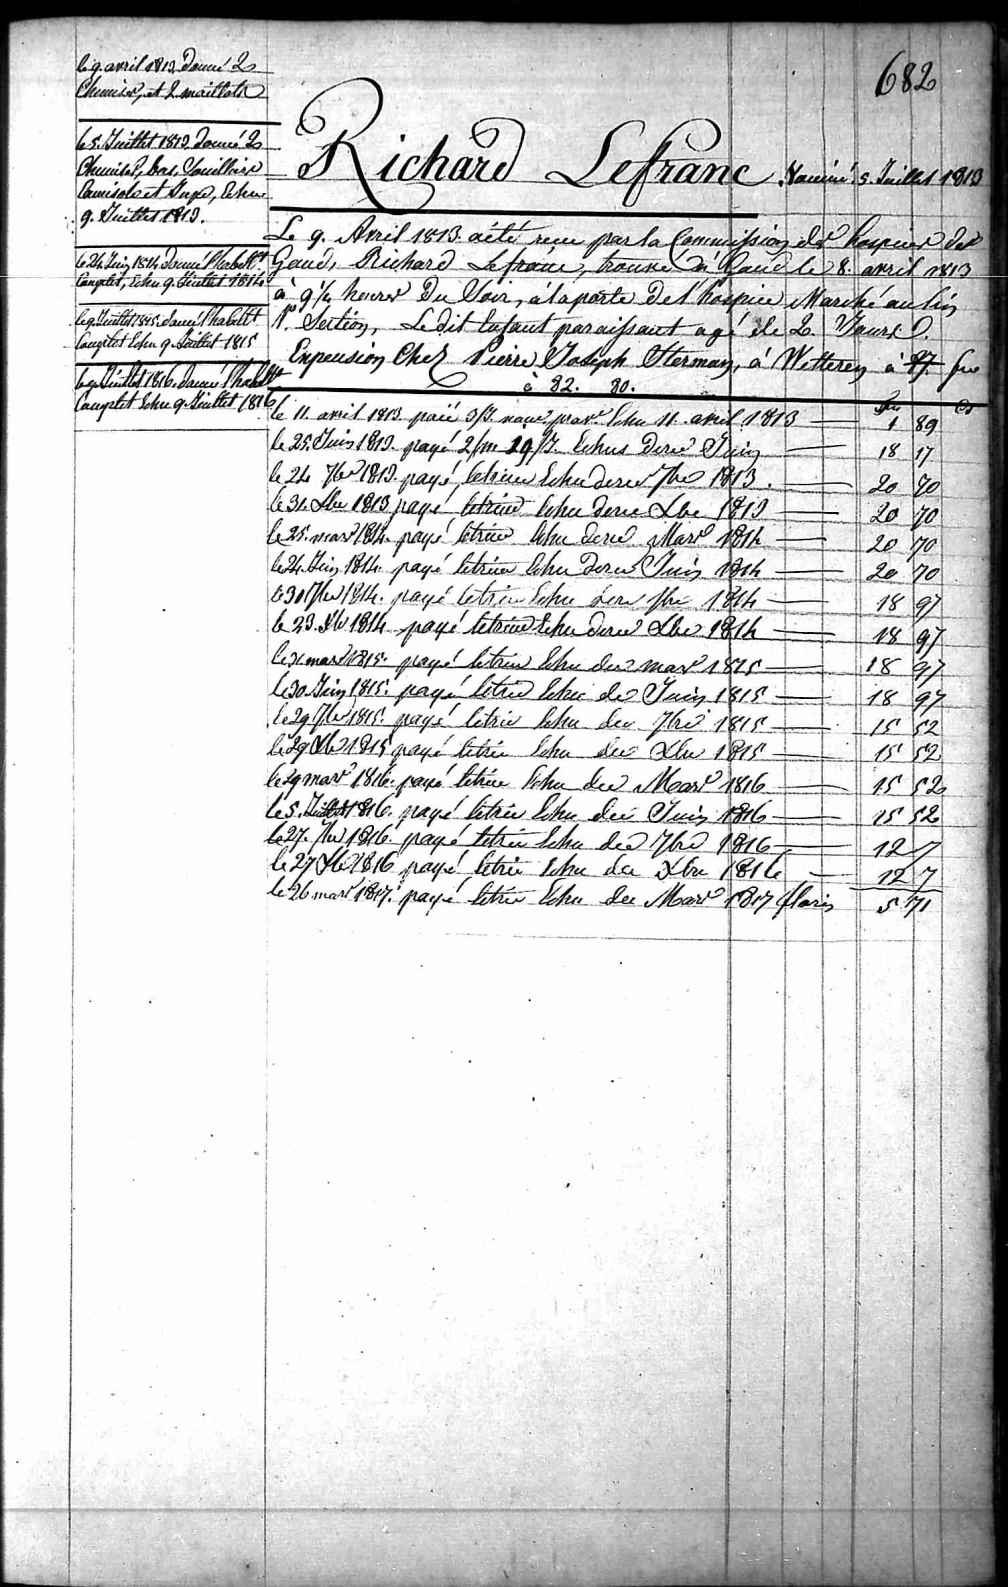 682
le 9. avril 1813. donné 2
Chemises, et 2 maillots
le 5. Juillet 1813. donné 2
Chemises, bas, Souilliers
Camisole et Jupe, Echu
9. Juillet 1813.
le 24 Juin 1814 donné l'habillt
Complet, Echu 9. Juillet 1814
le 9 Juillet 1815. donné l'habillt
Complet Echu 9. Juillet 1815
le 9 Juillet 1816. donné l'habillt
Complet Echu 9. Juillet 1816
Richard Lefranc Vacciné 5 Juillet 1813
Le 9. Avril 1813. a été recu par la Commission des hospices de
Gand, Richard Lefranc, trouvé à Gand le 8. avril 1813
à 9 1/4 heures Du Soir, à la porte De l'hospice Marché au lin
1e. Section, Le dit Enfant paraissant agé de 2. Jours.
En pension Chez Pierre Joseph Sterman, à Wetteren à 87 frs
à 82. 80.
frs cs
le 11. avril 1813. paié Echu 11. avril 1813 — 1 89
le 25. Juin 1813. payé 2/m 19/J. Echus Dere Juin — 18 17
le 24 7bre 1813. payé, letrime Echu dere 7bre 1813. — 20 70
le 31. Xbre 1813 payé letrime Echu dere Xbre 1813 — 20 70
le 25. mars 1814. payé letrime Echu dere Mars 1814 — 20 70
le 24. Juin 1814. payé letrime Echu dere Juin 1814 — 20 70
le 30 7bre 1814. payé letrime Echu dere 7bre 1814 — 18 97
le 23. Xbre 1814 payé letrime Echu dere Xbre 1814 — 18 97
le 31 mars 1815. payé letrim Echu der mars 1815 — 18 97
le 30 Juin 1815. payé letrim Echu de Juin 1815 — 18 97
le 29 7bre 1815. payé letrim Echu der 7bre 1815 — 15 52
le 29 Xbre 1815 payé letrim Echu der Xbre 1815 — 15 52
le 29 mars 1816. payé letrim Echu der Mars 1816 — 15 52
le 5. Juillet 1816. payé letrim Echu der Juin 1816 — 15 52
le 27. 7bre 1816. payé letrim Echu der 7bre 1816 — 12 7
le 27 Xbre 1816 payé letrim Echu der Xbre 1816 — 12 7
le 26 mars 1817. payé letrim Echu der Mars 1817 florins 5 71